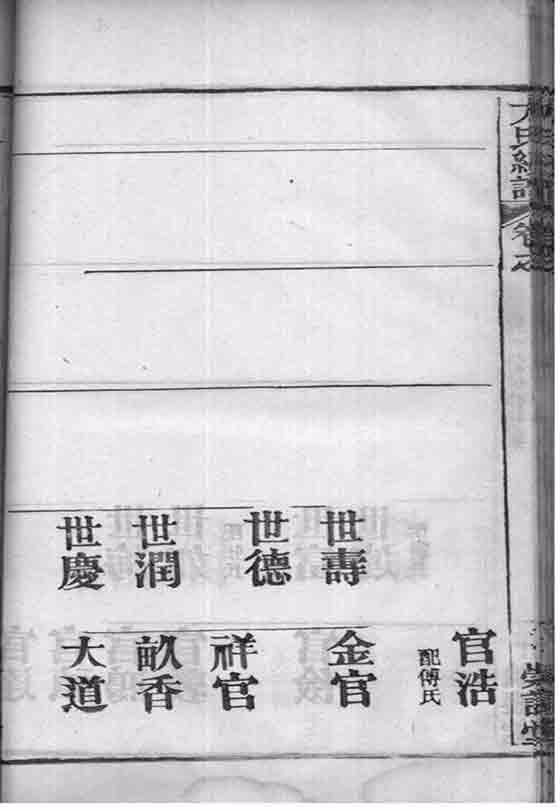 氏總譜
卷之
世壽
世德
世潤
世慶
官浩
配傅氏
金官
祥官
畝香
大道